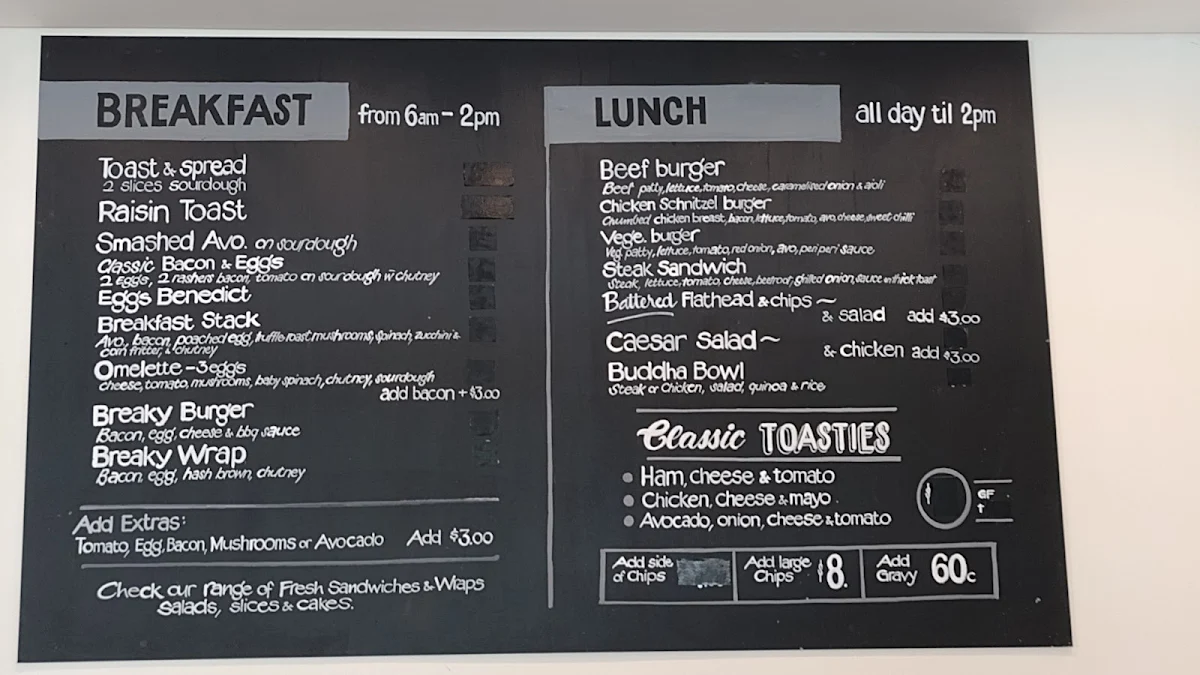 BREAKFAST from 6am - 2pm
Toast & spread
2 slices sourdough
Raisin Toast
Smashed Avo. on sourdough
Classic Bacon & Eggs
2 Eggs, 2 rashers bacon, tomato on sourdough w chutney
Eggs Benedict
Breakfast Stack
Avo, bacon, poached egg, truffle roast mushrooms, spinach, zucchini &
corn fritter, & chutney
Omelette - 3 eggs
cheese, tomato, mushrooms, baby spinach, chutney, sourdough
add bacon + $3.00
Breaky Burger
Bacon, egg, cheese & bbq sauce
Breaky Wrap
Bacon, egg, hash brown, chutney
Add Extras:
Tomato, Egg, Bacon, Mushrooms or Avocado Add $3.00
Check our range of Fresh Sandwiches & Wraps
salads, slices & cakes.
LUNCH all day til 2pm
Beef burger
Beef patty, lettuce, tomato, cheese, caramelised onion & aioli
Chicken Schnitzel burger
Crumbed chicken breast, bacon, lettuce, tomato, avo, cheese, sweet chilli
Vege. burger
Veg. patty, lettuce, tomato, red onion, avo, peri peri sauce
Steak Sandwich
Steak, lettuce, tomato, cheese, beetroot, grilled onion, sauce on thick toast
Battered Flathead & chips ~
& salad add $3.00
Caesar Salad ~ & chicken add $3.00
Buddha Bowl
Steak or Chicken, salad, quinoa & rice
Classic TOASTIES
• Ham, cheese & tomato
• Chicken, cheese & mayo.
• Avocado, onion, cheese & tomato
$
GF
Add side
of Chips
Add large
Chips $8.
Add
Gravy 60c